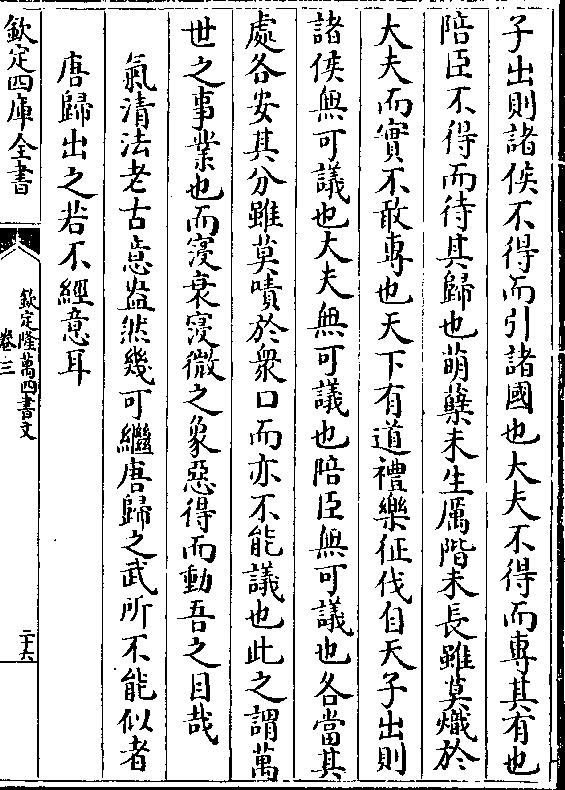 子出則諸侯不得而引諸國也大夫不得而專其有也
陪臣不得而待其歸也萌蘖未生厲階未長雖莫熾於
大夫而實不敢專也天下有道禮樂征伐自天子出則
諸侯無可議也大夫無可議也陪臣無可議也各當其
處各安其分雖莫嘖於衆口而亦不能議也此之謂萬
世之事業也而寖衰寖微之象惡得而動吾之目哉
氣清法老古意盎然幾可繼唐歸之武所不能似者
唐歸出之若不經意耳
欽定四庫全書
欽定隆萬四書文
卷三
二十六